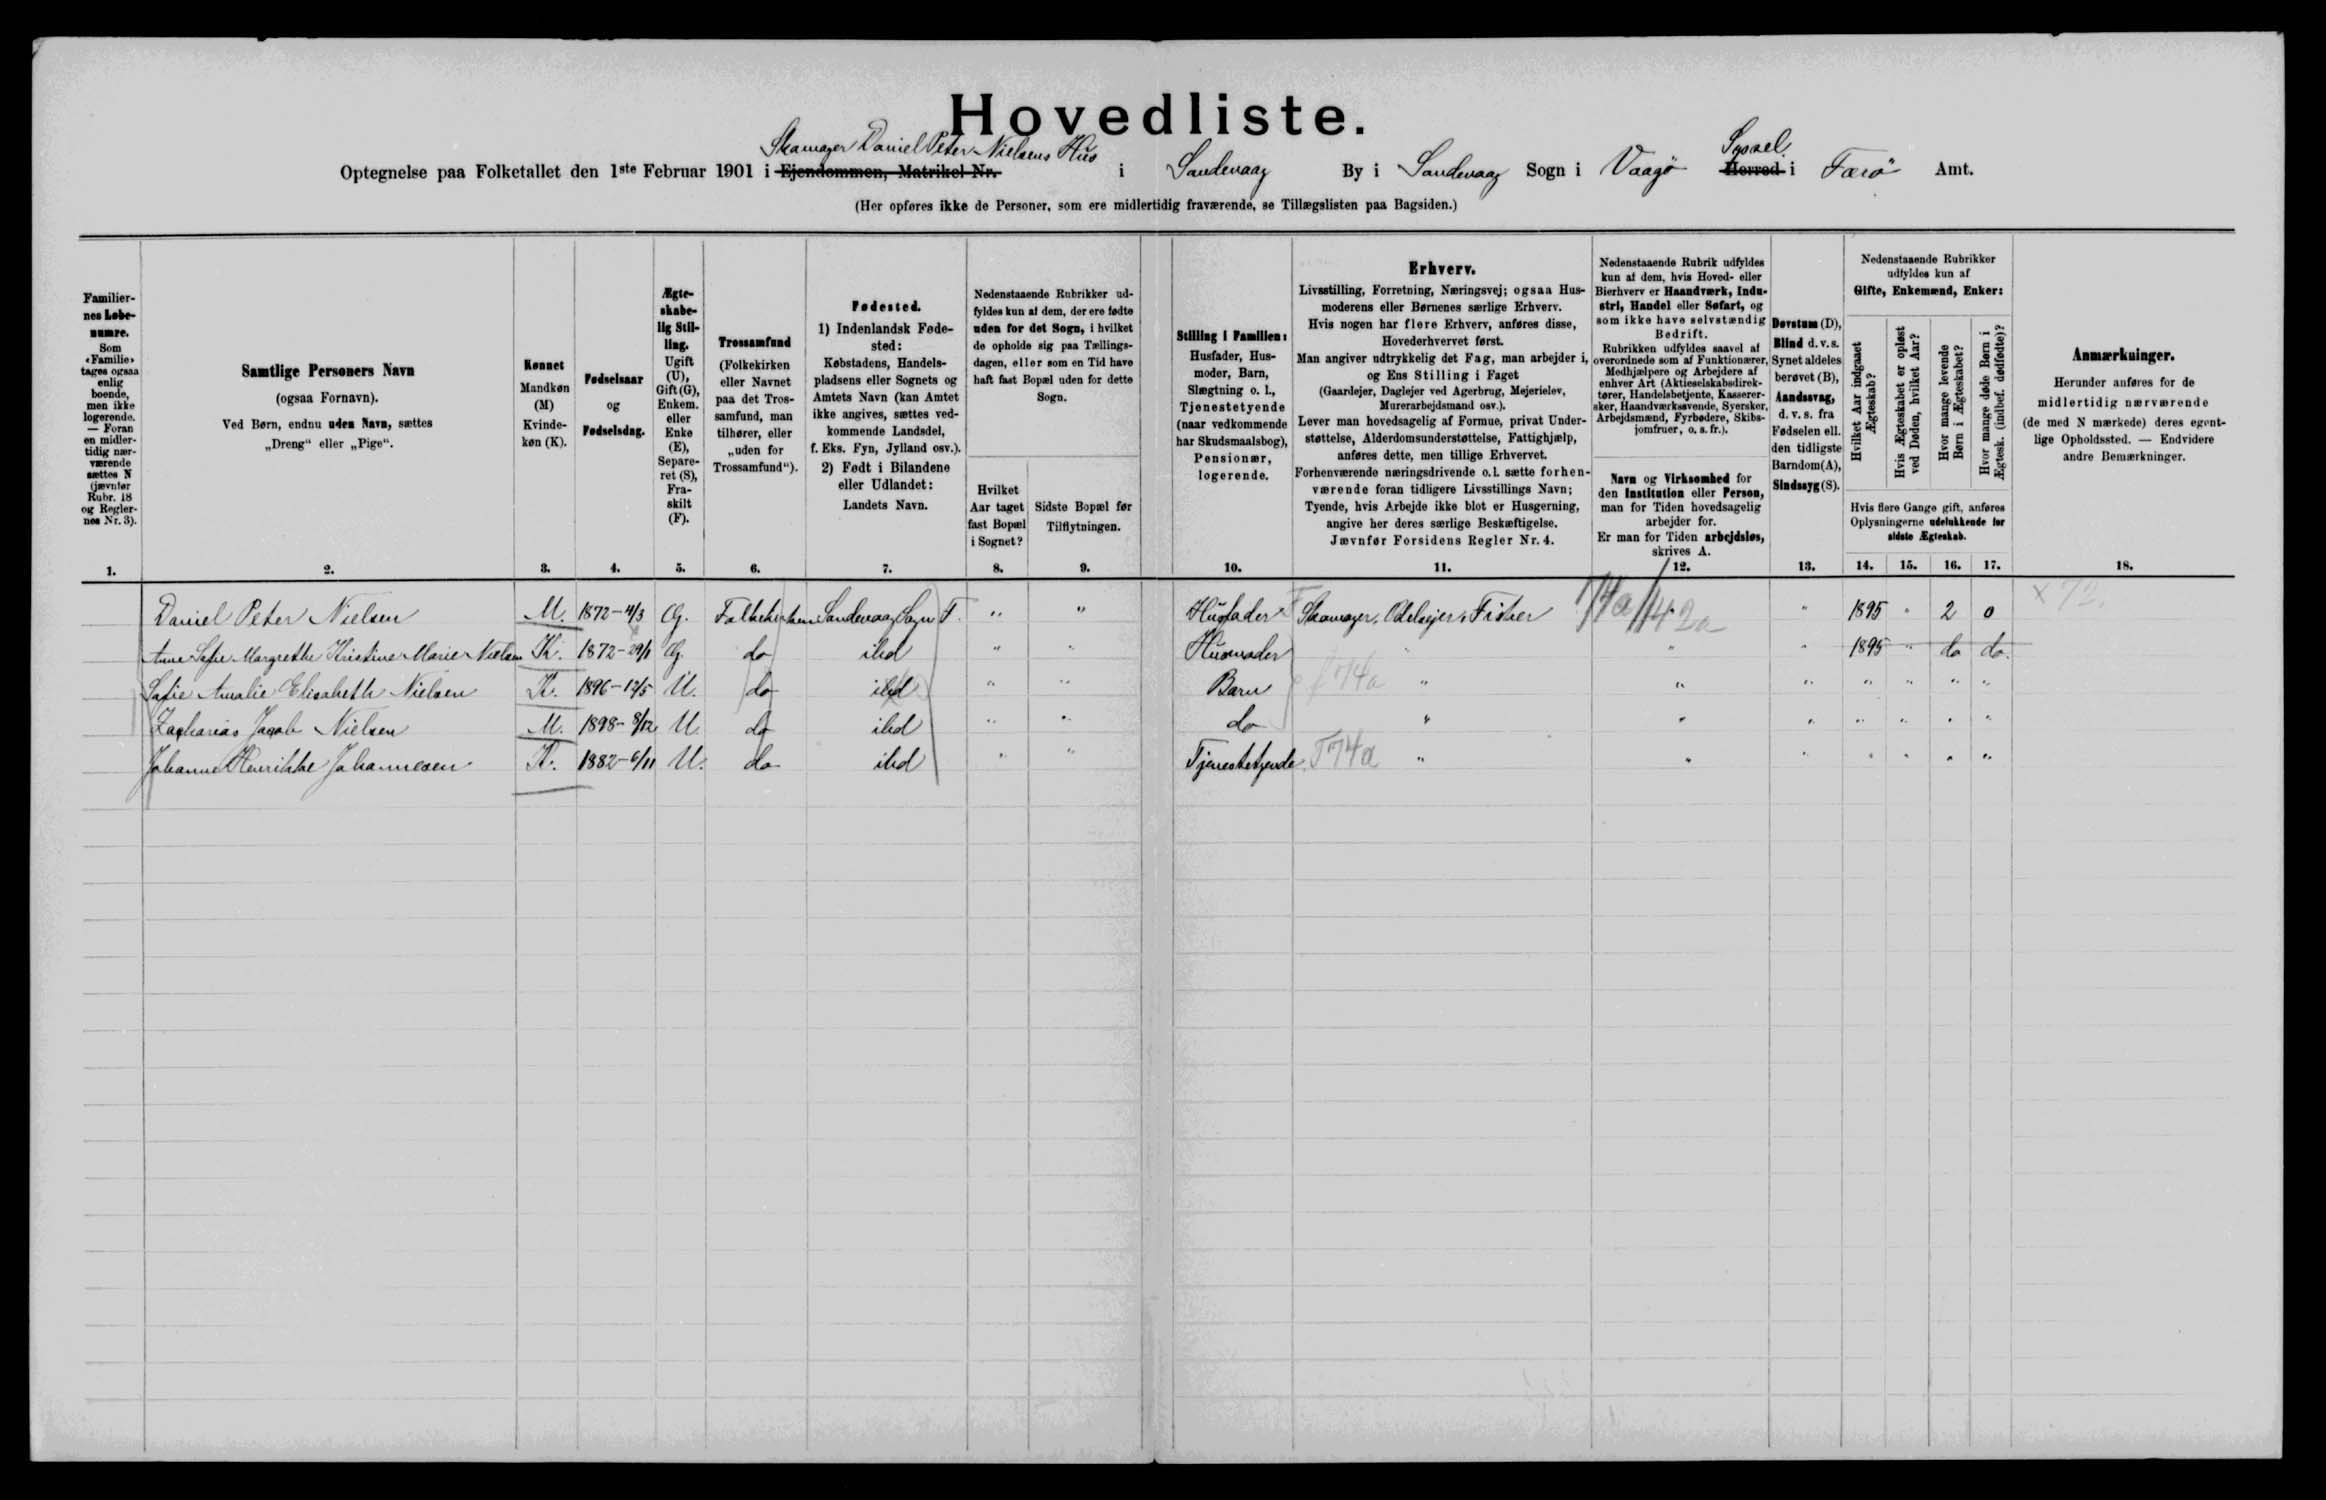 Hovedliste.
Skomager Daniel Peter Nielsens Hus
Syssel
Optegnelse paa Folketallet den 1ste Februar 1901 i Ejendommen, Matrikel Nr. i Sandevaag By i Sandevaag Sogn i Vaagø Herred i Færø Amt.
(Her opføres ikke de Personer, som ere midlertidig fraværende, se Tillægslisten paa Bagsiden.)
Familiernes Løbenumre.
Som «Familie» tages ogsaa enlig boende, men ikke logerende. — Foran en midlertidig nærværende sættes N (jævnfør Rubr. 18 og Reglernes Nr. 3).
1.
Samtlige Personers Navn
(ogsaa Fornavn).
Ved Børn, endnu uden Navn, sættes
„Dreng" eller „Pige".
2.
Kønnet
Mandkøn (M)
Kvindekøn (K).
3.
Fødselsaar
og
Fødselsdag.
4.
Ægteskabelig Stilling.
Ugift (U), Gift (G), Enkem. eller Enke (E), Separeret (S), Fraskilt (F).
5.
Trossamfund
(Folkekirken eller Navnet paa det Trossamfund, man tilhører, eller „uden for Trossamfund").
6.
Fødested.
1) Indenlandsk Fødested:
Købstadens, Handelspladsens eller Sognets og Amtets Navn (kan Amtet ikke angives, sættes vedkommende Landsdel, f. Eks. Fyn, Jylland osv.).
2) Født i Bilandene eller Udlandet:
Landets Navn.
7.
Nedenstaaende Rubrikker udfyldes kun af dem, der ere fødte uden for det Sogn, i hvilket de opholde sig paa Tællingsdagen, eller som en Tid have haft fast Bopæl uden for dette Sogn.
Hvilket Aar taget fast Bopæl i Sognet?
8.
Sidste Bopæl før Tilflytningen.
9.
Stilling i Familien:
Husfader, Husmoder, Barn, Slægtning o. l., Tjenestetyende (naar vedkommende har Skudsmaalsbog), Pensionær, logerende.
10.
Erhverv.
Livsstilling, Forretning, Næringsvej; ogsaa Husmoderens eller Børnenes særlige Erhverv.
Hvis nogen har flere Erhverv, anføres disse, Hovederhvervet først.
Man angiver udtrykkelig det Fag, man arbejder i, og Ens Stilling i Faget
(Gaardejer, Daglejer ved Agerbrug, Mejerielev, Murerarbejdsmand osv.).
Lever man hovedsagelig af Formue, privat Understøttelse, Alderdomsunderstøttelse, Fattighjælp, anføres dette, men tillige Erhvervet.
Forhenværende næringsdrivende o. l. sætte forhenværende foran tidligere Livsstillings Navn;
Tyende, hvis Arbejde ikke blot er Husgerning, angive her deres særlige Beskæftigelse.
Jævnfør Forsidens Regler Nr. 4.
11.
Nedenstaaende Rubrik udfyldes kun af dem, hvis Hoved- eller Bierhverv er Haandværk, Industri, Handel eller Søfart, og som ikke have selvstændig Bedrift.
Rubrikken udfyldes saavel af overordnede som af Funktionærer, Medhjælpere og Arbejdere af enhver Art (Aktieselskabsdirektører, Handelsbetjente, Kasserersker, Haandværkssvende, Syersker, Arbejdsmænd, Fyrbødere, Skibsjomfruer, o. s. fr.).
Navn og Virksomhed for den Institution eller Person, man for Tiden hovedsagelig arbejder for.
Er man for Tiden arbejdsløs, skrives A.
12.
Døvstum (D), Blind d. v. s. Synet aldeles berøvet (B), Aandssvag, d. v. s. fra Fødselen ell. den tidligste Barndom (A), Sindssyg (S).
13.
Nedenstaaende Rubrikker udfyldes kun af
Gifte, Enkemænd, Enker:
Hvilket Aar indgaaet Ægteskab?
Hvis Ægteskabet er opløst ved Døden, hvilket Aar?
Hvor mange levende Børn i Ægteskabet?
Hvor mange døde Børn i Ægtesk. (indbef. dødfødte)?
Hvis flere Gange gift, anføres Oplysningerne udelukkende for sidste Ægteskab.
14. 15. 16. 17.
Anmærkninger.
Herunder anføres for de midlertidig nærværende (de med N mærkede) deres egentlige Opholdssted. — Endvidere andre Bemærkninger.
18.
Daniel Peter Nielsen M. 1872-4/3 G. Folkekirken Sandevaag Sogn F. " " Husfader F Skomager, Odelsejer, Fisker 74a 142a " 1895 " 2 0 x 72.
Anne Sofie Margrethe Kristine Marie Nielsen K. 1872-29/1 G. do ibd " " Husmoder " " " 1895 " do do.
Sofie Amalie Elisabeth Nielsen K. 1896-12/5 U. do ibd " " Barn f 74a " " " " " " "
Zacharias Jacob Nielsen M. 1898-8/12 U. do ibd " " do " " " " " " "
Johanne Henrikke Johannesen K. 1882-6/11 U. do ibd " " Tjenestetyende. T 74a " " " " " " "